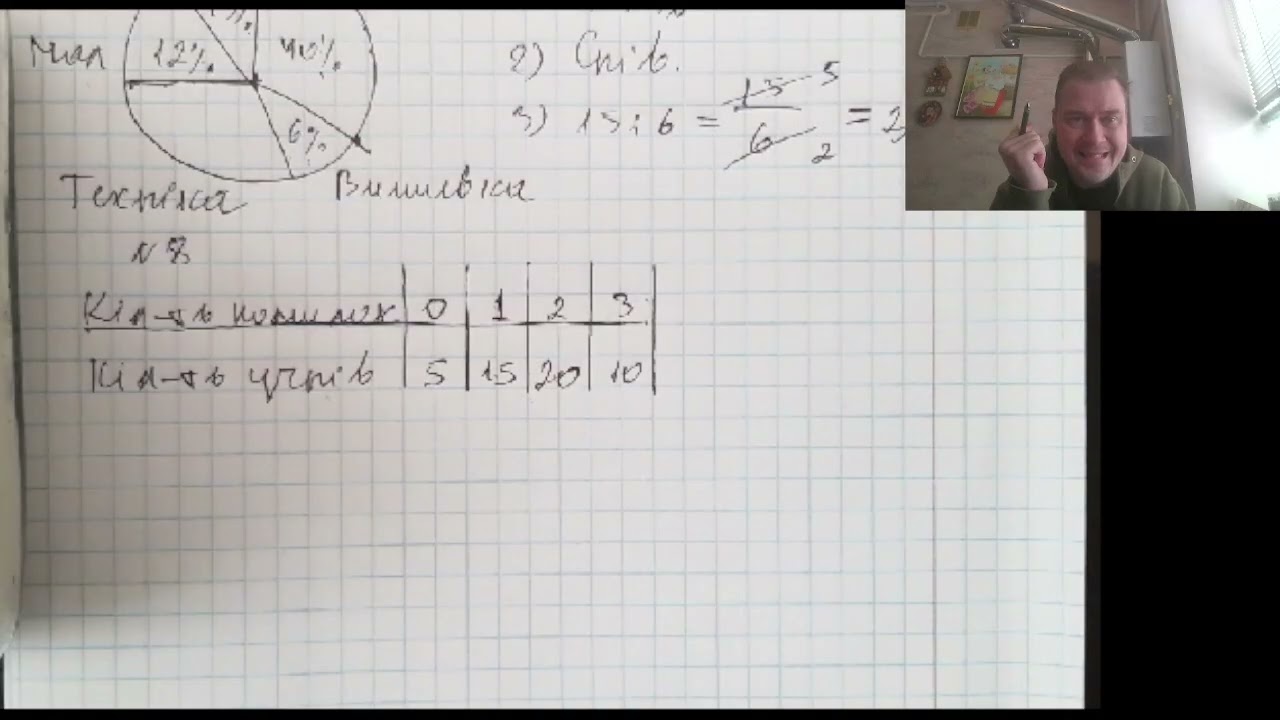 12% 40%
6%
Техніка
Вишивка
2) Спів.
3) 15:6 = 15 5 / 6 2 = 2,
N 8
Кіл-ть помилок 0 1 2 3
Кіл-ть учнів 5 15 20 10